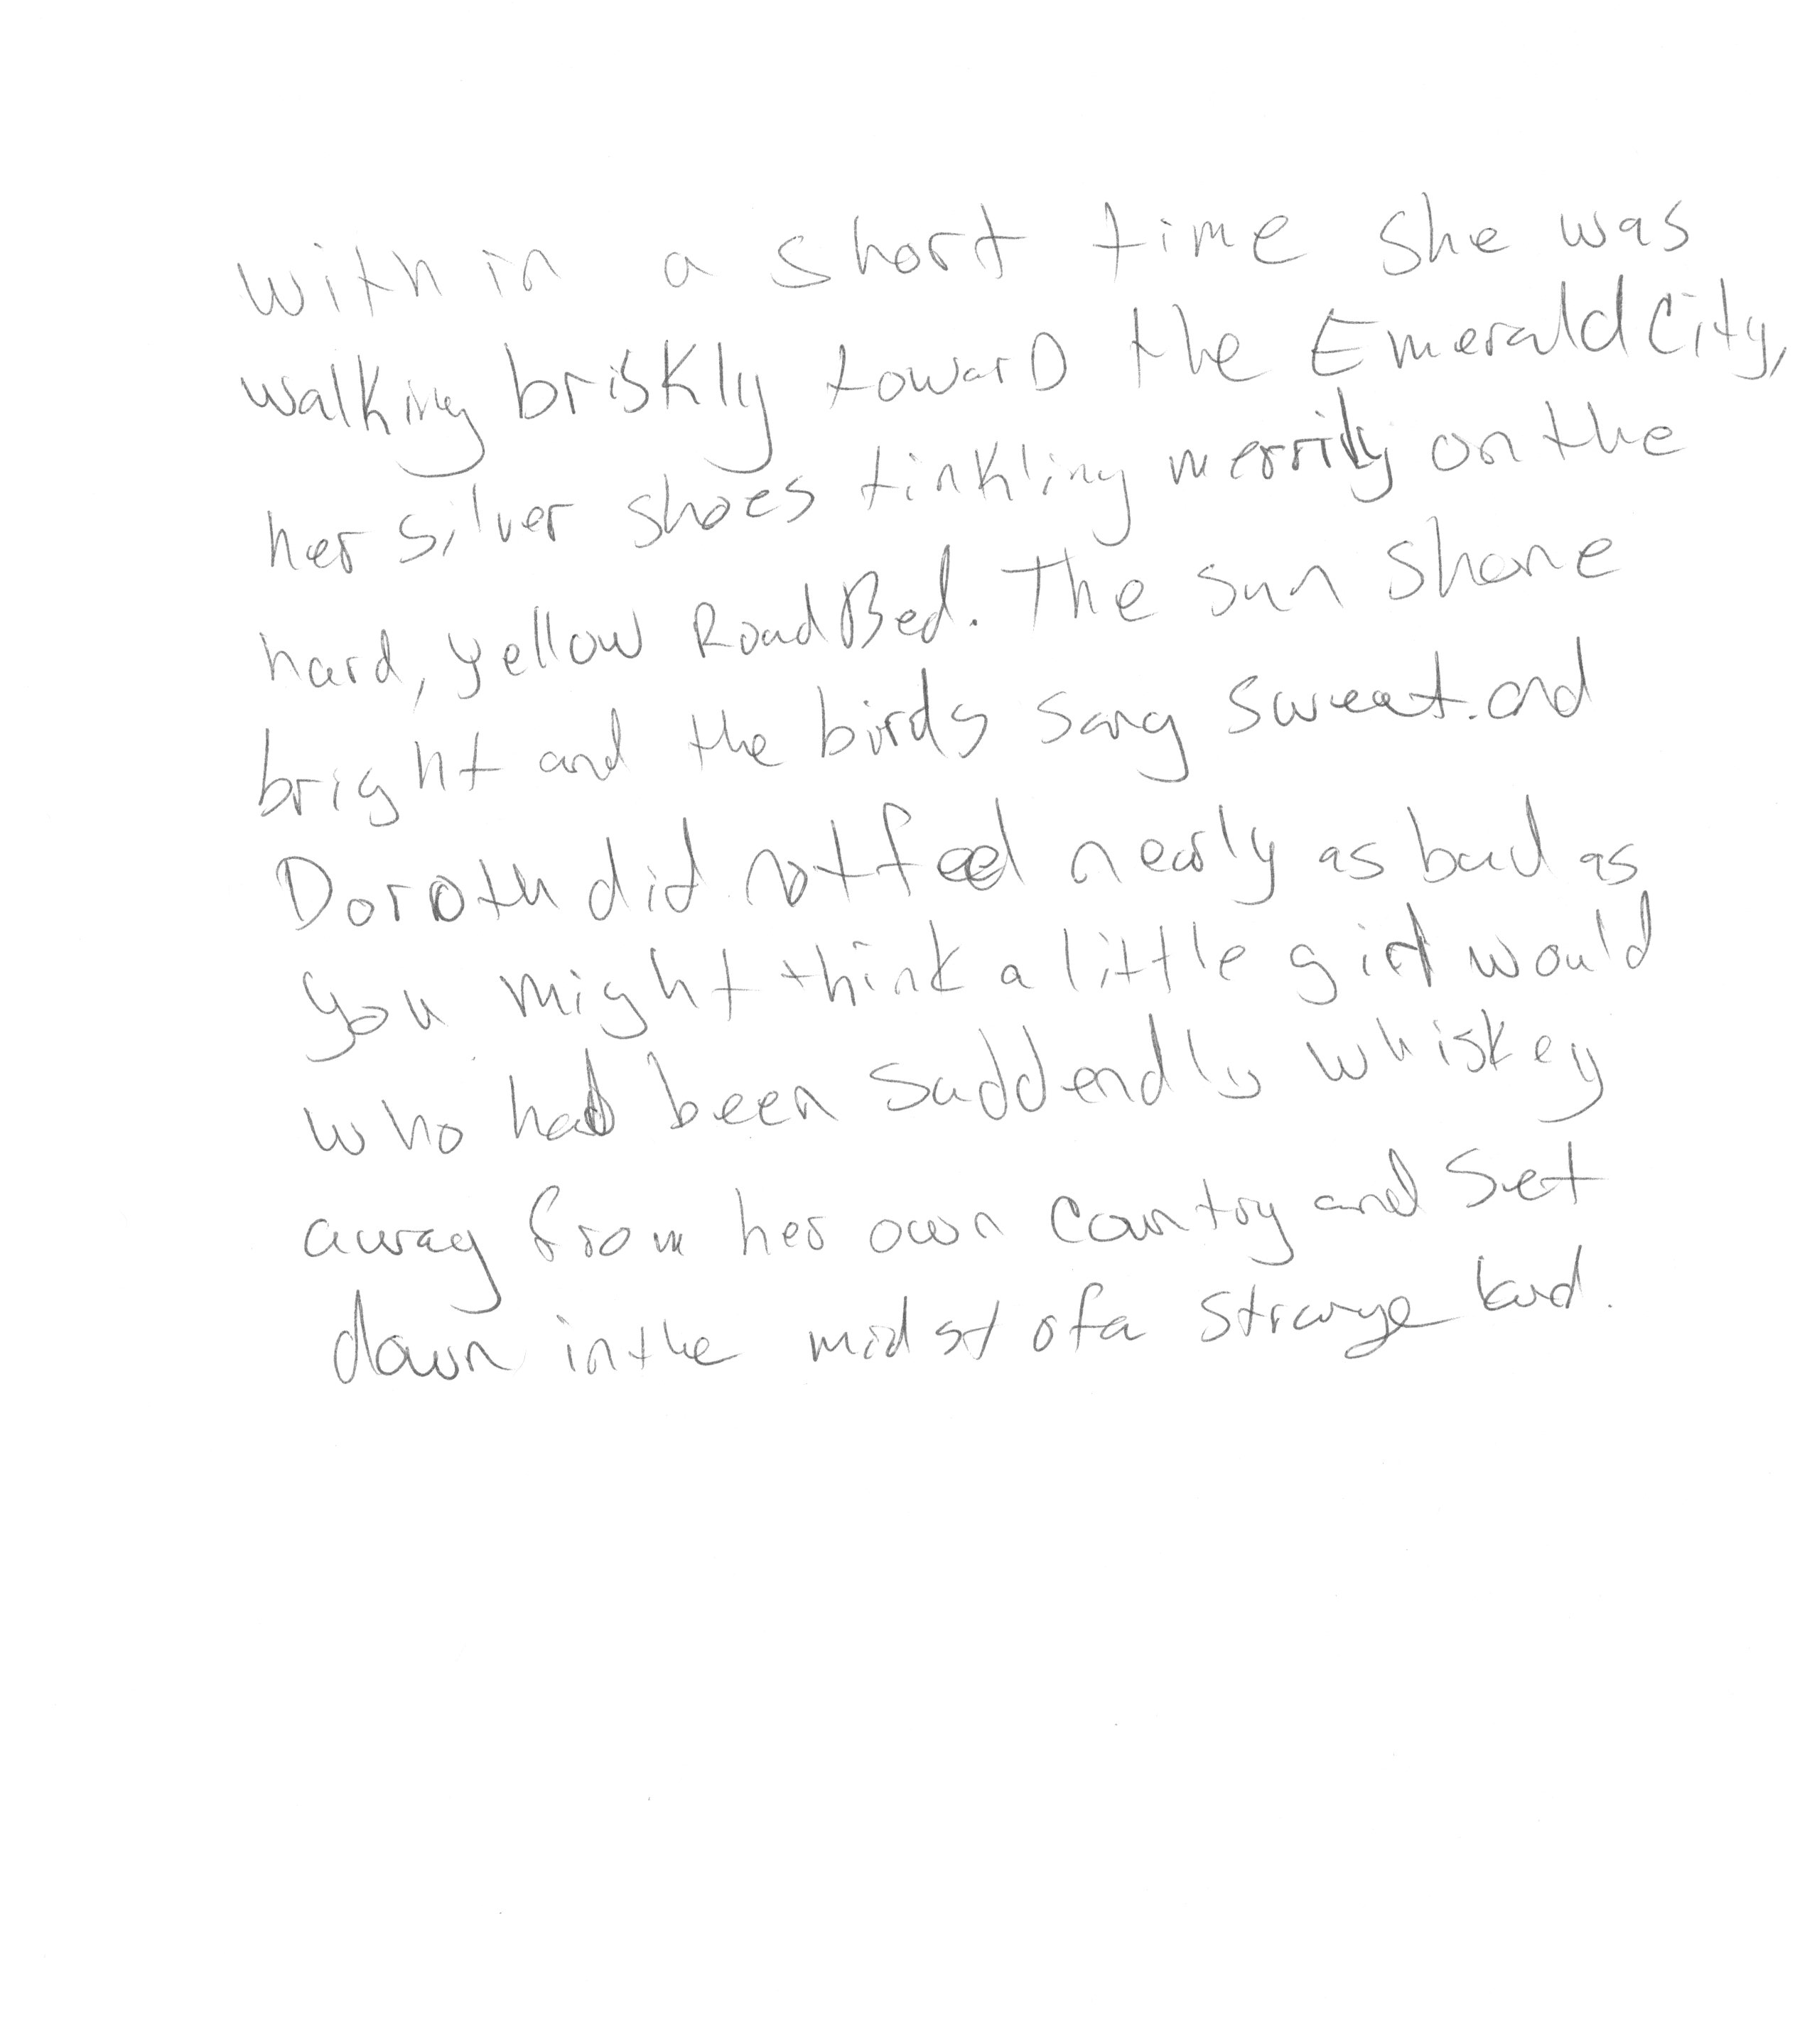 with in a short time she was
walking briskly towarD the Emerald City,
her silver shoes tinkling merrily on the
hard, yellow RoadBed. The sun shone
bright and the birds sang sweat. and
Doroth did not feel nearly as bad as
you might think a little girl would
who had been suddendly whiskey
away from her own country and set
down in the midst of a strange land.